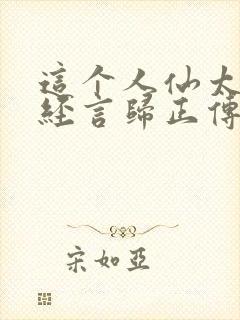 這个人仙太
經言歸正傳
宋如亞